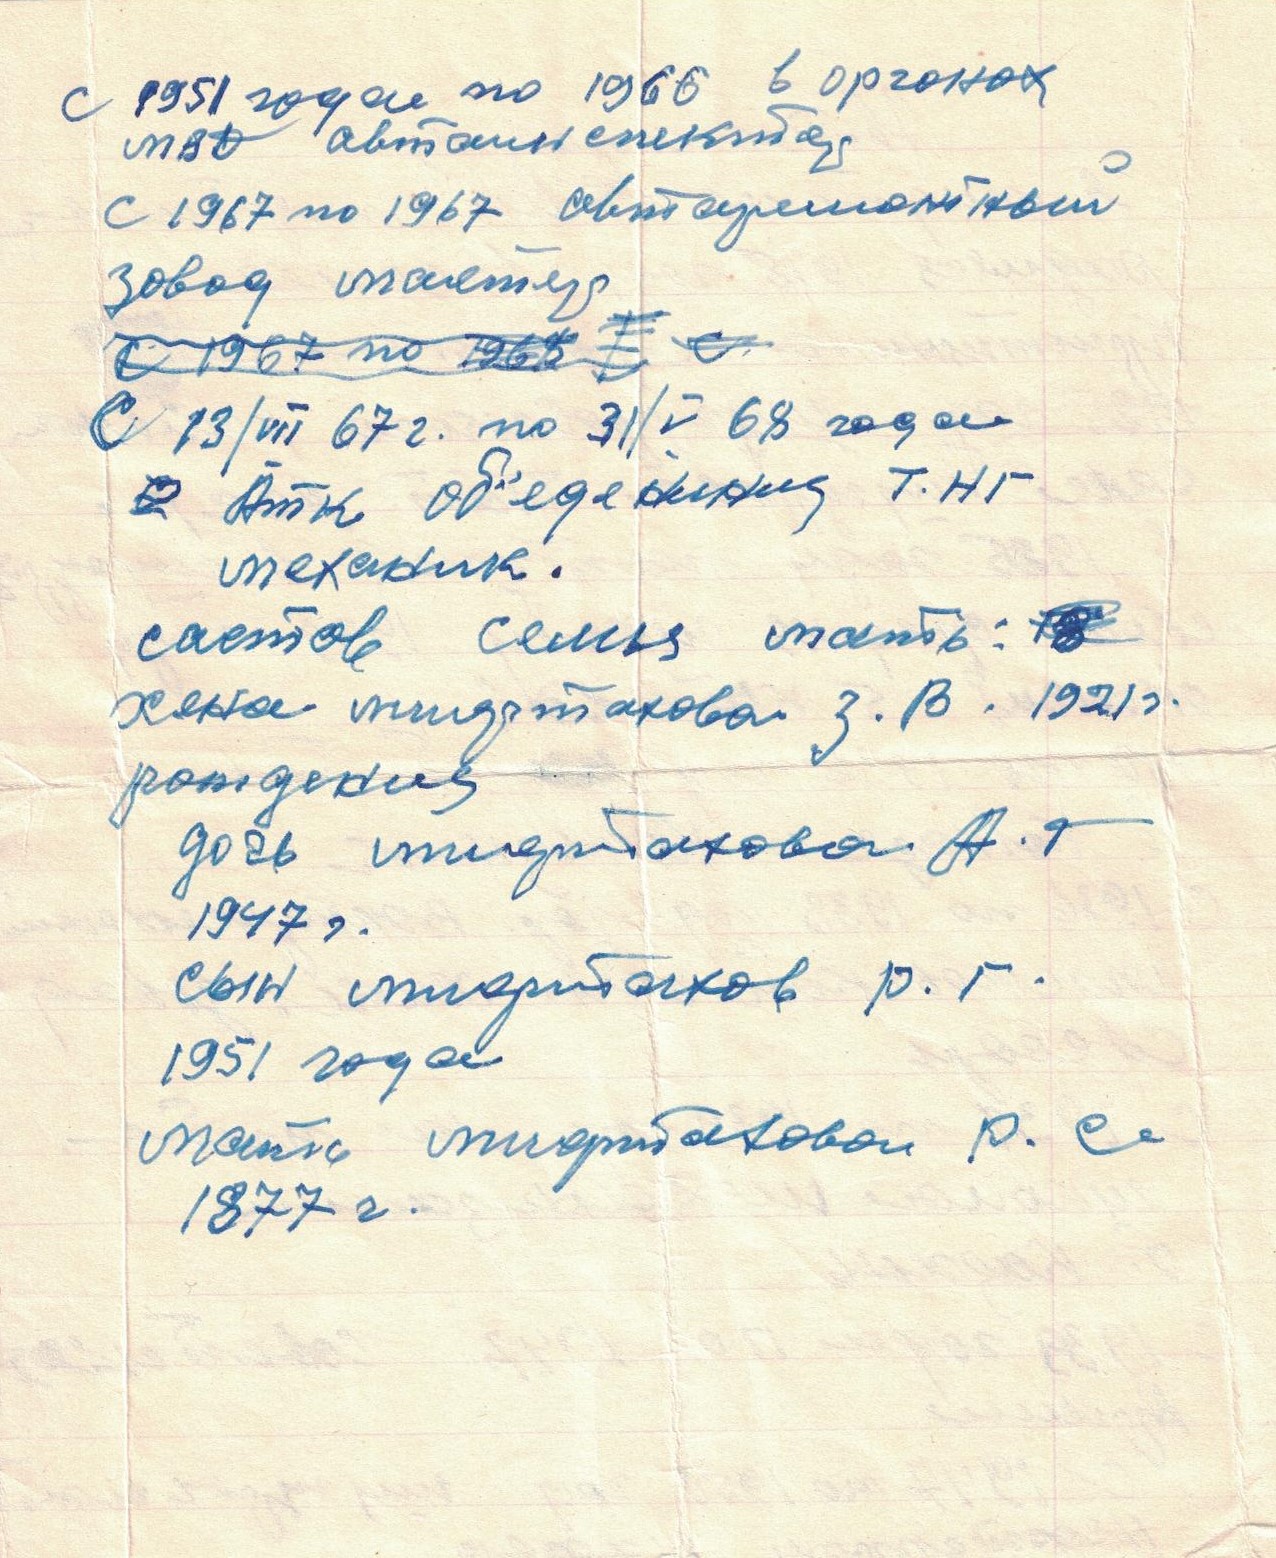 с 1951 года по 1966 в органах
мвд автаинспектар
с 1967 по 1967 автаремонтный
завод мастер
с 1967 по 1968
С 13/VII 67 г. по 31/V 68 года
Атк объедененият Т.НГ
механик.
састав семья мать:
жена миртахова З. В. 1921 г.
рождения
дочь миртахова А. Г
1947 г.
сын миртахов Р. Г.
1951 года
мать миртахова Р. С
1877 г.